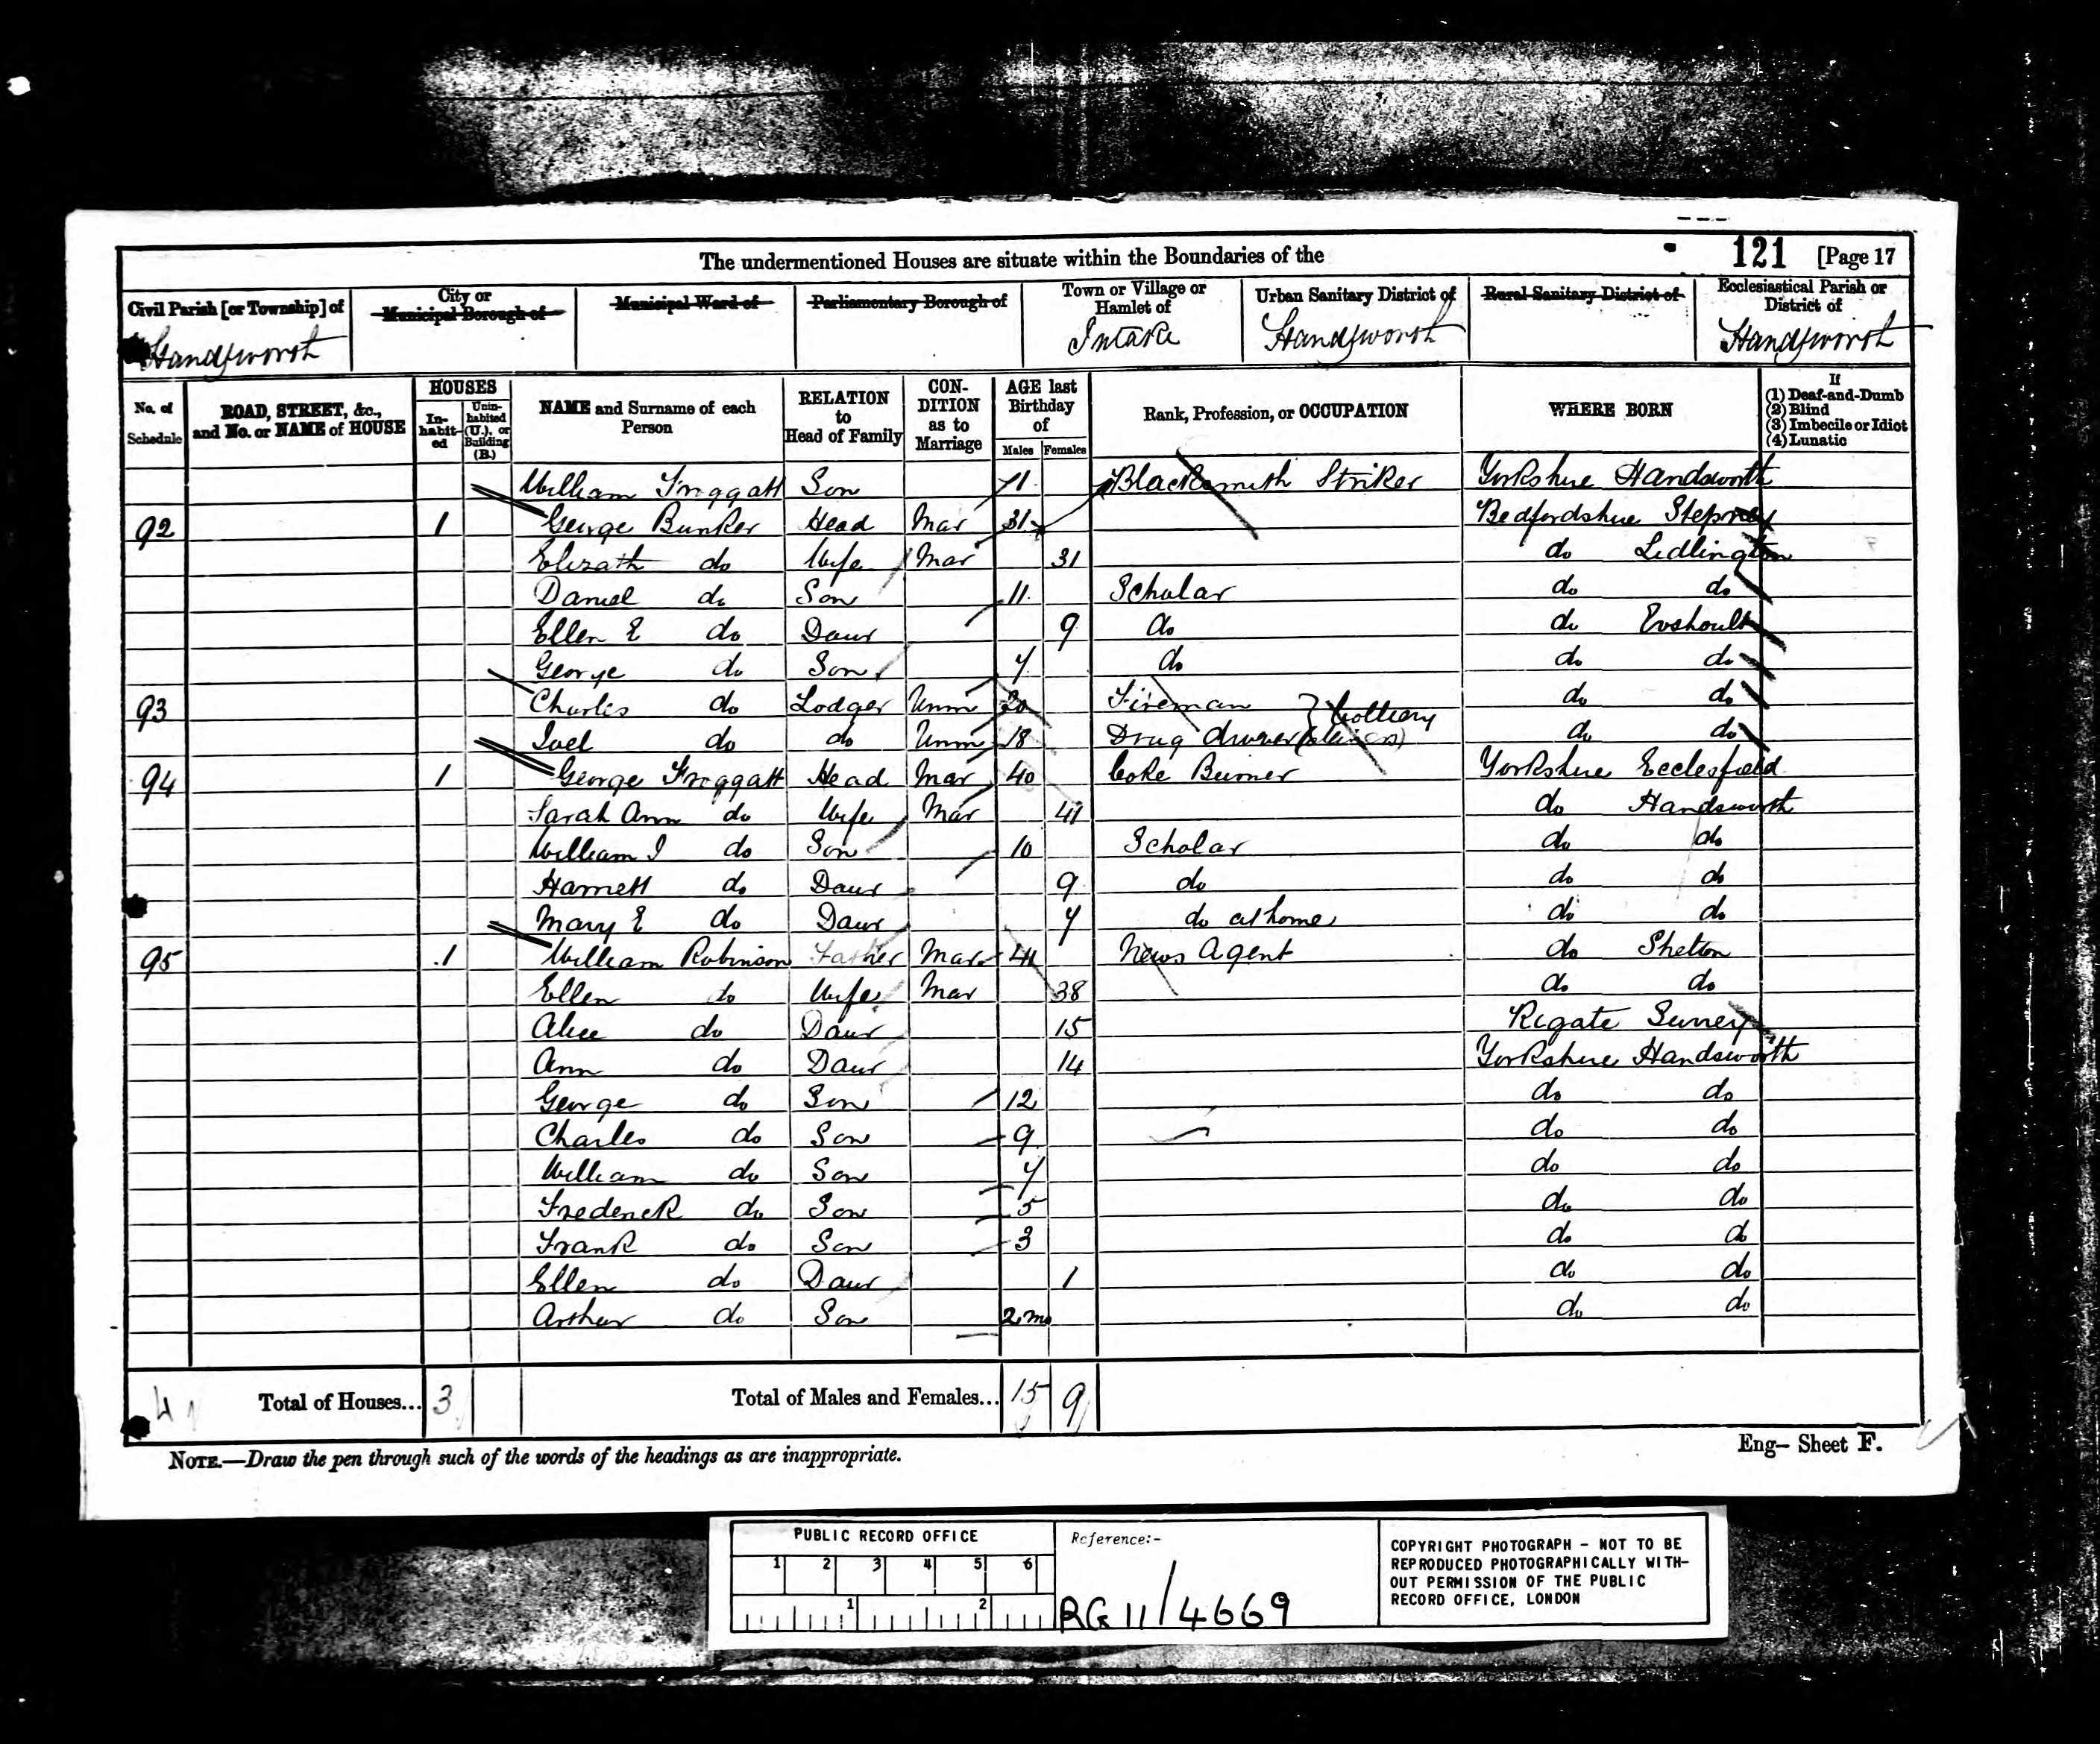 The undermentioned Houses are situate within the Boundaries of the 121 [Page 17
Civil Parish [or Township] of
Handsworth
City or Municipal Borough of
Municipal Ward of
Parliamentary Borough of
Town or Village or Hamlet of
Intake
Urban Sanitary District of
Handsworth
Rural Sanitary District of
Ecclesiastical Parish or District of
Handsworth
No. of Schedule
ROAD, STREET, &c., and No. or NAME of HOUSE
HOUSES
In-habit-ed
Unin-habited (U.), or Building (B.)
NAME and Surname of each Person
RELATION to Head of Family
CON-DITION as to Marriage
AGE last Birthday of
Males Females
Rank, Profession, or OCCUPATION
WHERE BORN
If
(1) Deaf-and-Dumb
(2) Blind
(3) Imbecile or Idiot
(4) Lunatic
William Froggatt Son 11 Blacksmith Striker Yorkshire Handsworth
92 1 George Bunker Head Mar 31 Bedfordshire
Elizath do Wife Mar 31 do Lidlington
Daniel do Son 11 Scholar do do
Ellen E do Daur 9 do do Evshoult
George do Son 7 do do do
93 Charles do Lodger Unm 20 Fireman } Colliery do do
Joel do do Unm 18 Drug driver do do
94 1 George Froggatt Head Mar 40 Coke Burner Yorkshire Ecclesfield
Sarah Ann do Wife Mar 41 do Handsworth
William I do Son 10 Scholar do do
Harriett do Daur 9 do do do
Mary E do Daur 7 do at home do do
95 1 William Robinson Father Mar 41 News Agent do Shelton
Ellen do Wife Mar 38 do do
Alice do Daur 15 Rigate Surrey
Ann do Daur 14 Yorkshire Handsworth
George do Son 12 do do
Charles do Son 9 do do
William do Son 7 do do
Frederick do Son 5 do do
Frank do Son 3 do do
Ellen do Daur 1 do do
Arthur do Son 2m do do
4 Total of Houses... 3 Total of Males and Females... 15 9
NOTE.—Draw the pen through such of the words of the headings as are inappropriate.
Eng— Sheet F.
PUBLIC RECORD OFFICE
1 2 3 4 5 6
1 2
Reference:-
RG 11/4669
COPYRIGHT PHOTOGRAPH - NOT TO BE
REPRODUCED PHOTOGRAPHICALLY WITH-
OUT PERMISSION OF THE PUBLIC
RECORD OFFICE, LONDON